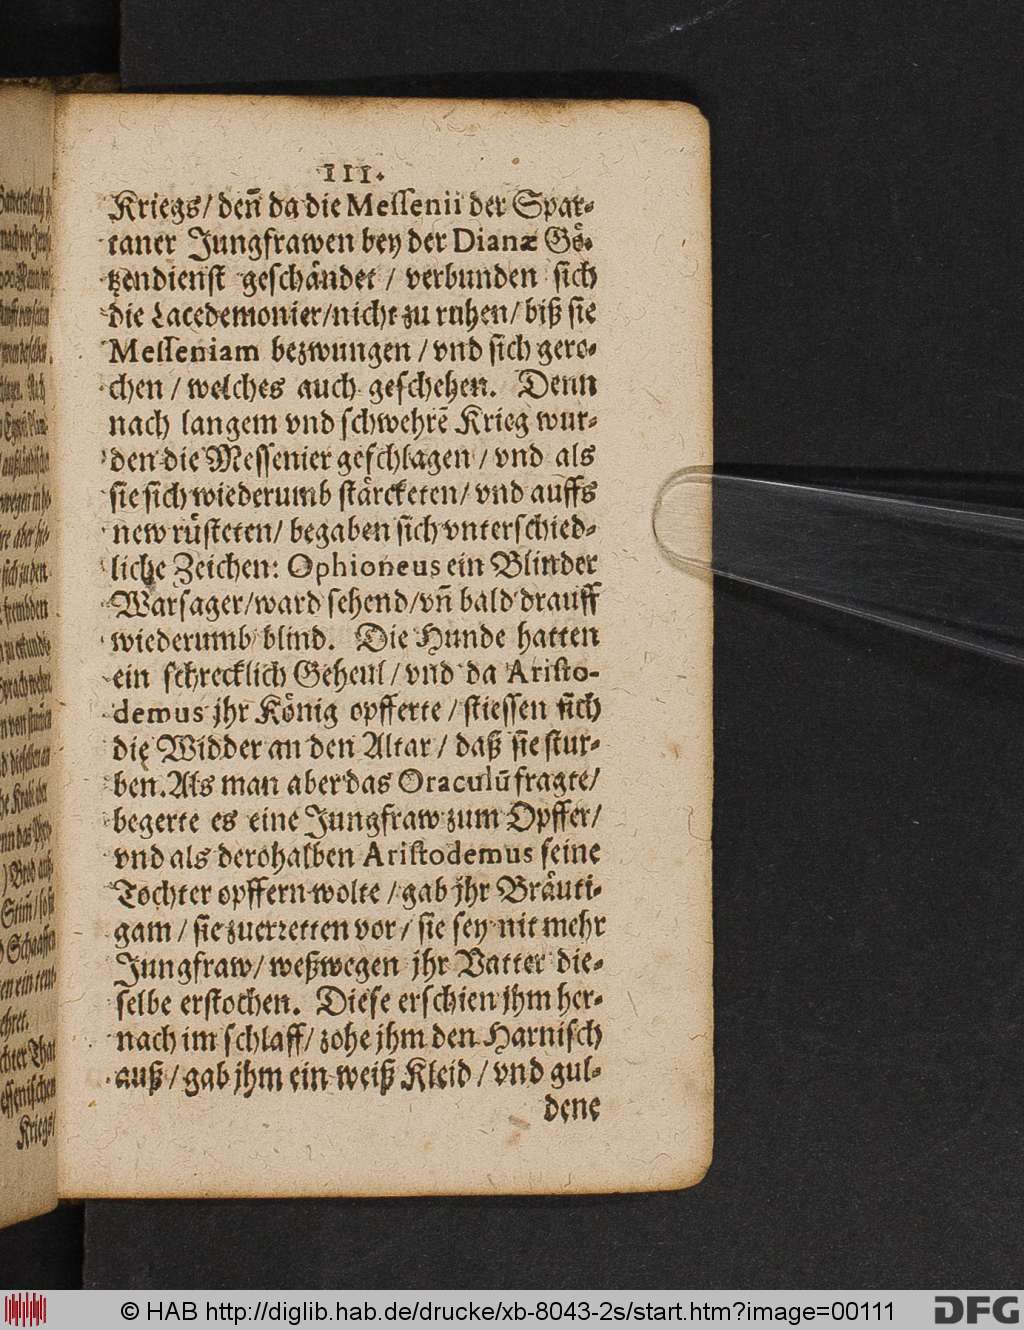 III.
Kriegs/ deñ da die Messenii der Spar-
taner Jungfrawen bey der Dianæ Gö-
tzendienst geschändet / verbunden sich
die Lacedemonier/nicht zu ruhen/ biß sie
Messeniam bezwungen / vnd sich gero-
chen / welches auch geschehen. Denn
nach langem vnd schwehrẽ Krieg wur-
den die Messenier geschlagen / vnd als
sie sich wiederumb stärcketen/ vnd auffs
new rüsteten/ begaben sich vnterschied-
liche Zeichen: Ophioneus ein Blinder
Warsager/ward sehend/vñ bald drauff
wiederumb blind. Die Hunde hatten
ein schrecklich Geheul / vnd da Aristo-
demus jhr König opfferte / stiessen sich
die Widder an den Altar / daß sie stur-
ben. Als man aber das Oraculũ fragte/
begerte es eine Jungfraw zum Opffer/
vnd als derohalben Aristodemus seine
Tochter opffern wolte / gab jhr Bräuti-
gam / sie zuerretten vor / sie sey nit mehr
Jungfraw/ weßwegen jhr Vatter die-
selbe erstochen. Diese erschien jhm her-
nach im schlaff/ zohe jhm den Harnisch
auß / gab jhm ein weiß Kleid / vnd gul-
dene
Kriegs/
© HAB http://diglib.hab.de/drucke/xb-8043-2s/start.htm?image=00111
DFG